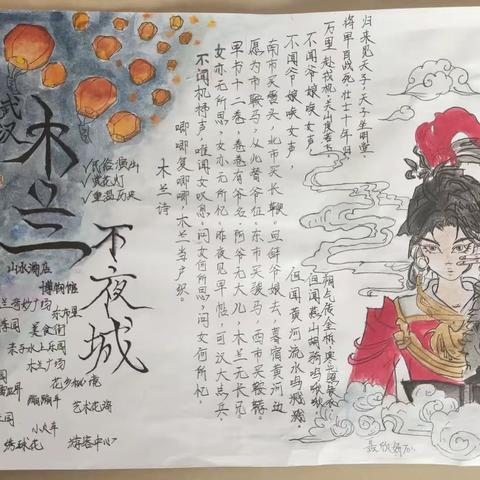 武汉
木兰
不夜城
✓民俗演出
✓赏花灯
✓重温历史
山水酒店
博物馆
兰奇妙广场
美食街
亲子水上乐园
木兰广场
蹦蹦车
艺术花海
小火车
绣球花
游客中心
木兰诗
唧唧复唧唧，木兰当户织。
不闻机杼声，唯闻女叹息。问女何所思，问女何所忆
女亦无所思，女亦无所忆。昨夜见军帖，可汗大点兵
军书十二卷，卷卷有爷名。阿爷无大儿，木兰无长兄
愿为市鞍马，从此替爷征。东市买骏马，西市买鞍鞯
南市买辔头，北市买长鞭。旦辞爷娘去，暮宿黄河边
不闻爷娘唤女声，
但闻黄河流水鸣溅溅
不闻爷娘唤女声
但闻燕山胡骑鸣啾啾
万里赴戎机，关山度若飞
朔气传金柝，寒光照铁衣
将军百战死，壮士十年归
归来见天子，天子坐明堂